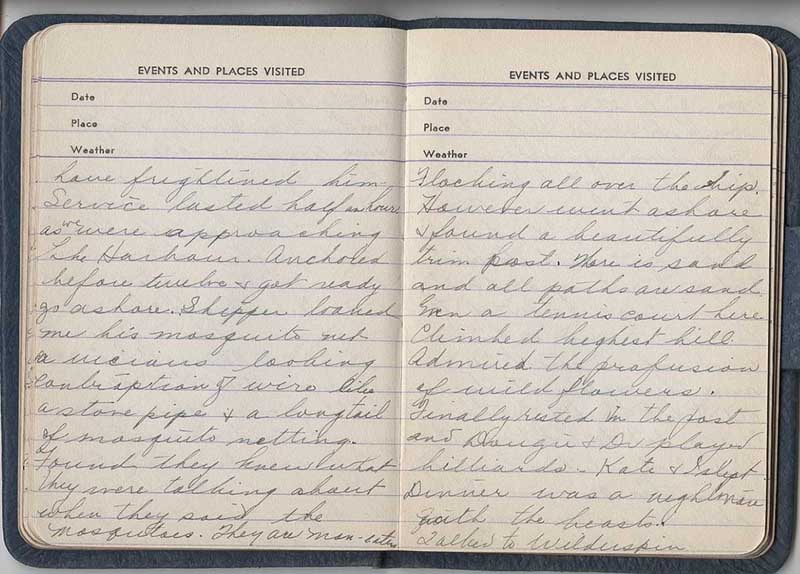 EVENTS AND PLACES VISITED
Date
Place
Weather
have frightined him.
Service lasted half an hour
as we were approaching
the Harbour. Anchored
before twelve & got ready
go ashore. Skipper loaned
me his mosquito net
a vicious looking
contraption of wire like
a stove pipe & a longtail
of mosquito netting.
Found they knew what
they were talking about
when they said the
mosquitoes. They are man-eaters
EVENTS AND PLACES VISITED
Date
Place
Weather
Flocking all over the ship.
However went ashore
& found a beautifully
trim post. There is sand
and all paths are sand.
Even a tennis court here.
Climbed heghest hill.
Admired the profusion
of wild flowers.
Finally rested in the post
and Dougie & Dr played
billiards - Kate & I slept.
Dinner was a nightmare
with the beasts.
Talked to Wilderspin